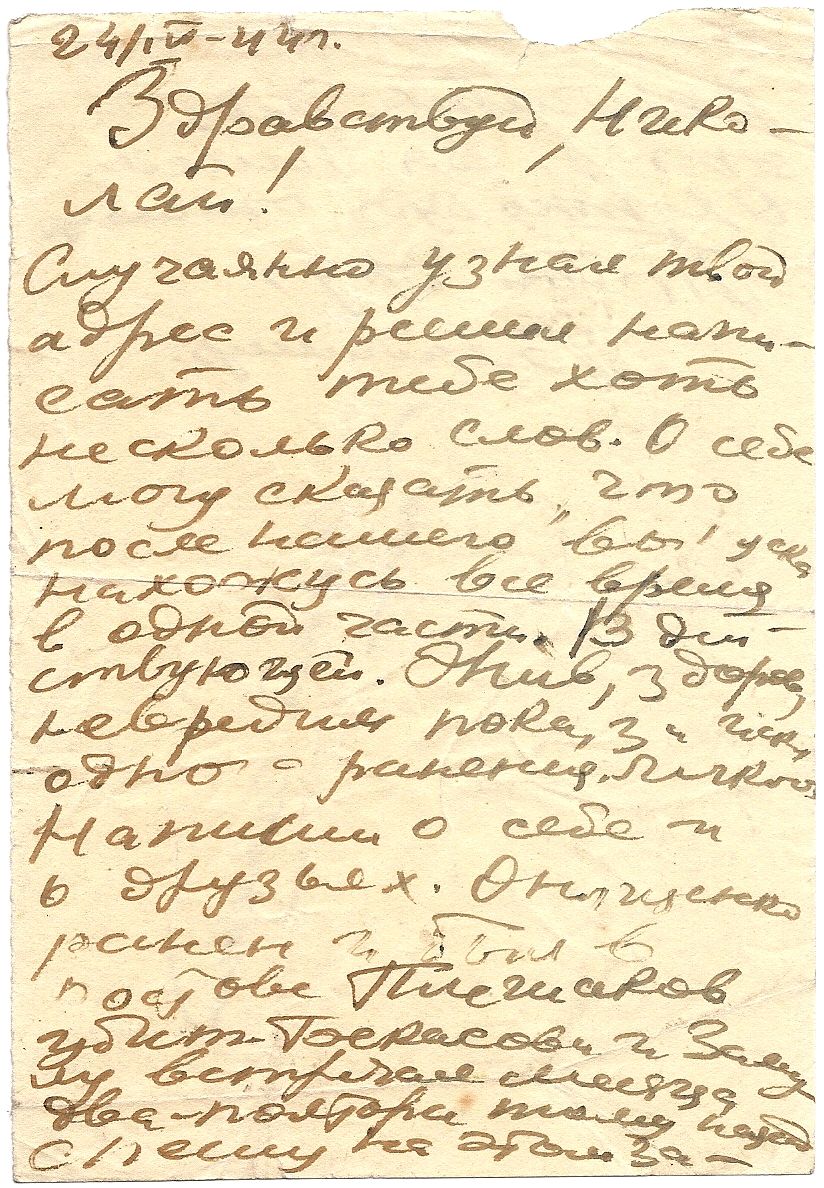 24/IV-44 г.
Здравствуй, Нико-
лай!
Случаянно узнал твой
адрес и решил напи-
сать тебе хоть
несколько слов. О себе
могу сказать, что
после нашего "вы
нахожусь все время
в одной части. В дей-
ствующей. Жив, здоров,
невредим пока, за
одно - ранения.
Напиши о себе и
о друзьях. Онищенко
ранен и был в
Ростове
убит. и
встречал месяца
два-полтора тому назад
Спешу на этом за-